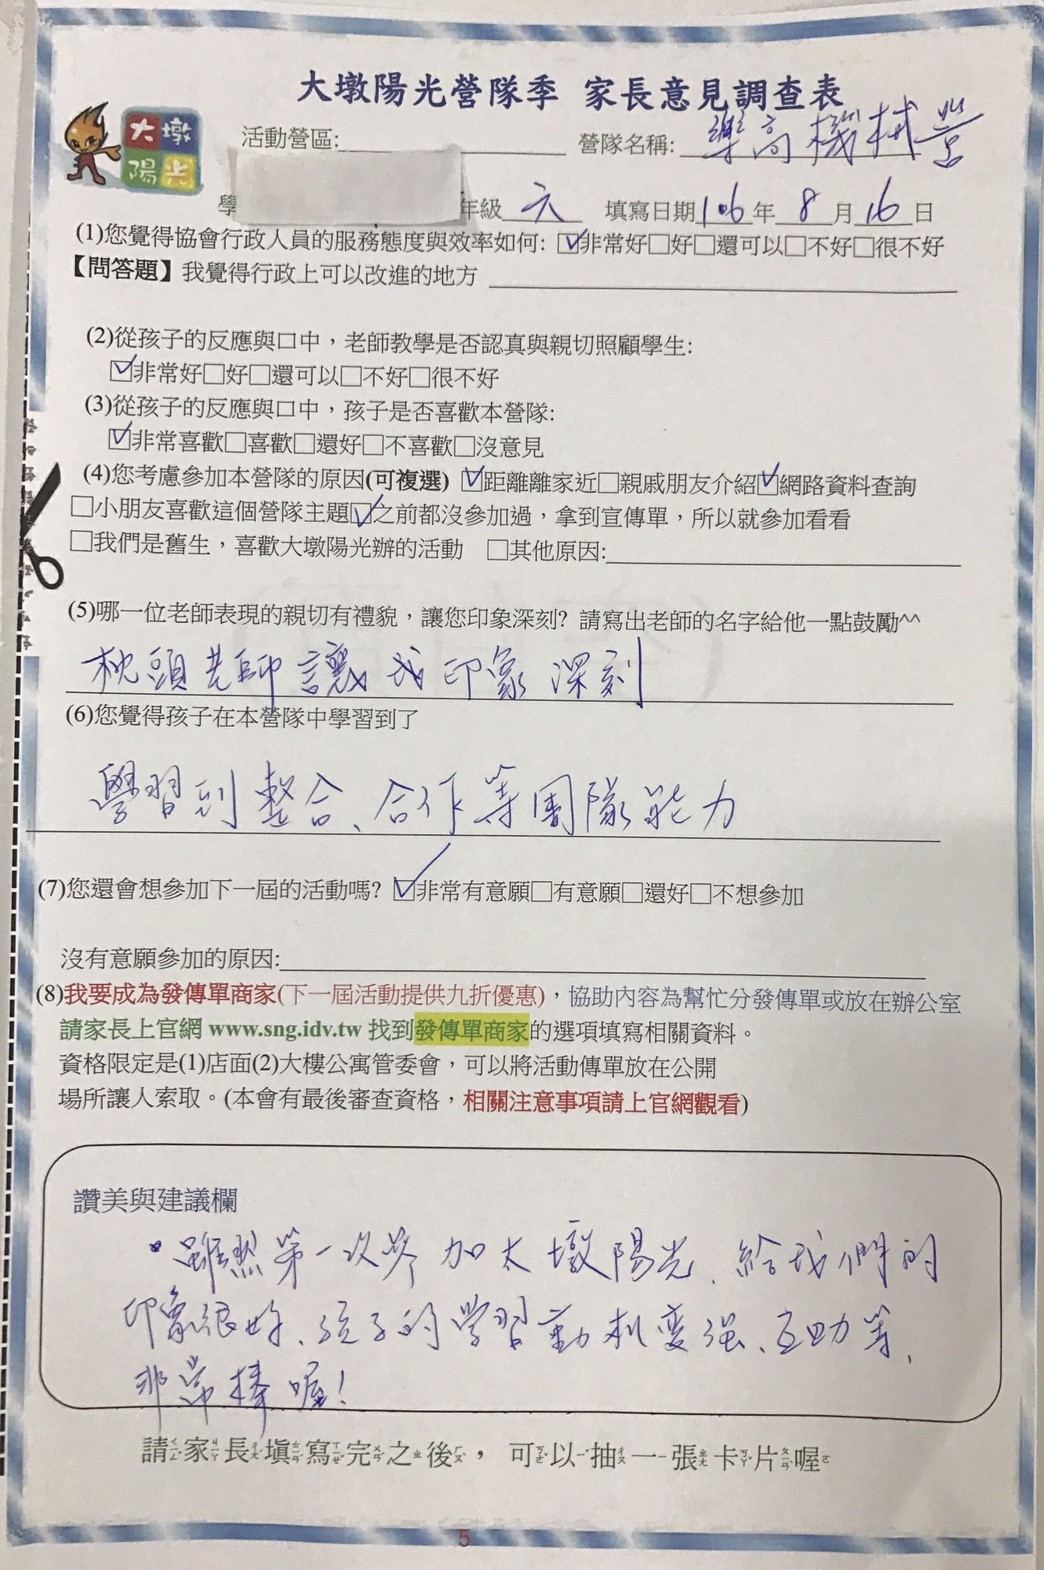 大墩陽光營隊季 家長意見調查表
大墩
陽光
活動營區: 營隊名稱: 樂高機械營
學 年級 六 填寫日期 106 年 8 月 16 日
(1)您覺得協會行政人員的服務態度與效率如何: ☑非常好□好□還可以□不好□很不好
【問答題】我覺得行政上可以改進的地方
(2)從孩子的反應與口中，老師教學是否認真與親切照顧學生:
☑非常好□好□還可以□不好□很不好
(3)從孩子的反應與口中，孩子是否喜歡本營隊:
☑非常喜歡□喜歡□還好□不喜歡□沒意見
(4)您考慮參加本營隊的原因(可複選) ☑距離離家近□親戚朋友介紹☑網路資料查詢
□小朋友喜歡這個營隊主題☑之前都沒參加過，拿到宣傳單，所以就參加看看
□我們是舊生，喜歡大墩陽光辦的活動 □其他原因:
(5)哪一位老師表現的親切有禮貌，讓您印象深刻? 請寫出老師的名字給他一點鼓勵^^
枕頭老師讓我印象深刻
(6)您覺得孩子在本營隊中學習到了
學習到整合、合作等團隊能力
(7)您還會想參加下一屆的活動嗎? ☑非常有意願□有意願□還好□不想參加
沒有意願參加的原因:
(8)我要成為發傳單商家(下一屆活動提供九折優惠)，協助內容為幫忙分發傳單或放在辦公室
請家長上官網 www.sng.idv.tw 找到發傳單商家的選項填寫相關資料。
資格限定是(1)店面(2)大樓公寓管委會，可以將活動傳單放在公開
場所讓人索取。(本會有最後審查資格，相關注意事項請上官網觀看)
讚美與建議欄
雖然第一次參加大墩陽光、給我們的
印象很好、孩子的學習動机变强、互助等、
非常棒喔！
請家長填寫完之後，可以抽一張卡片喔
5